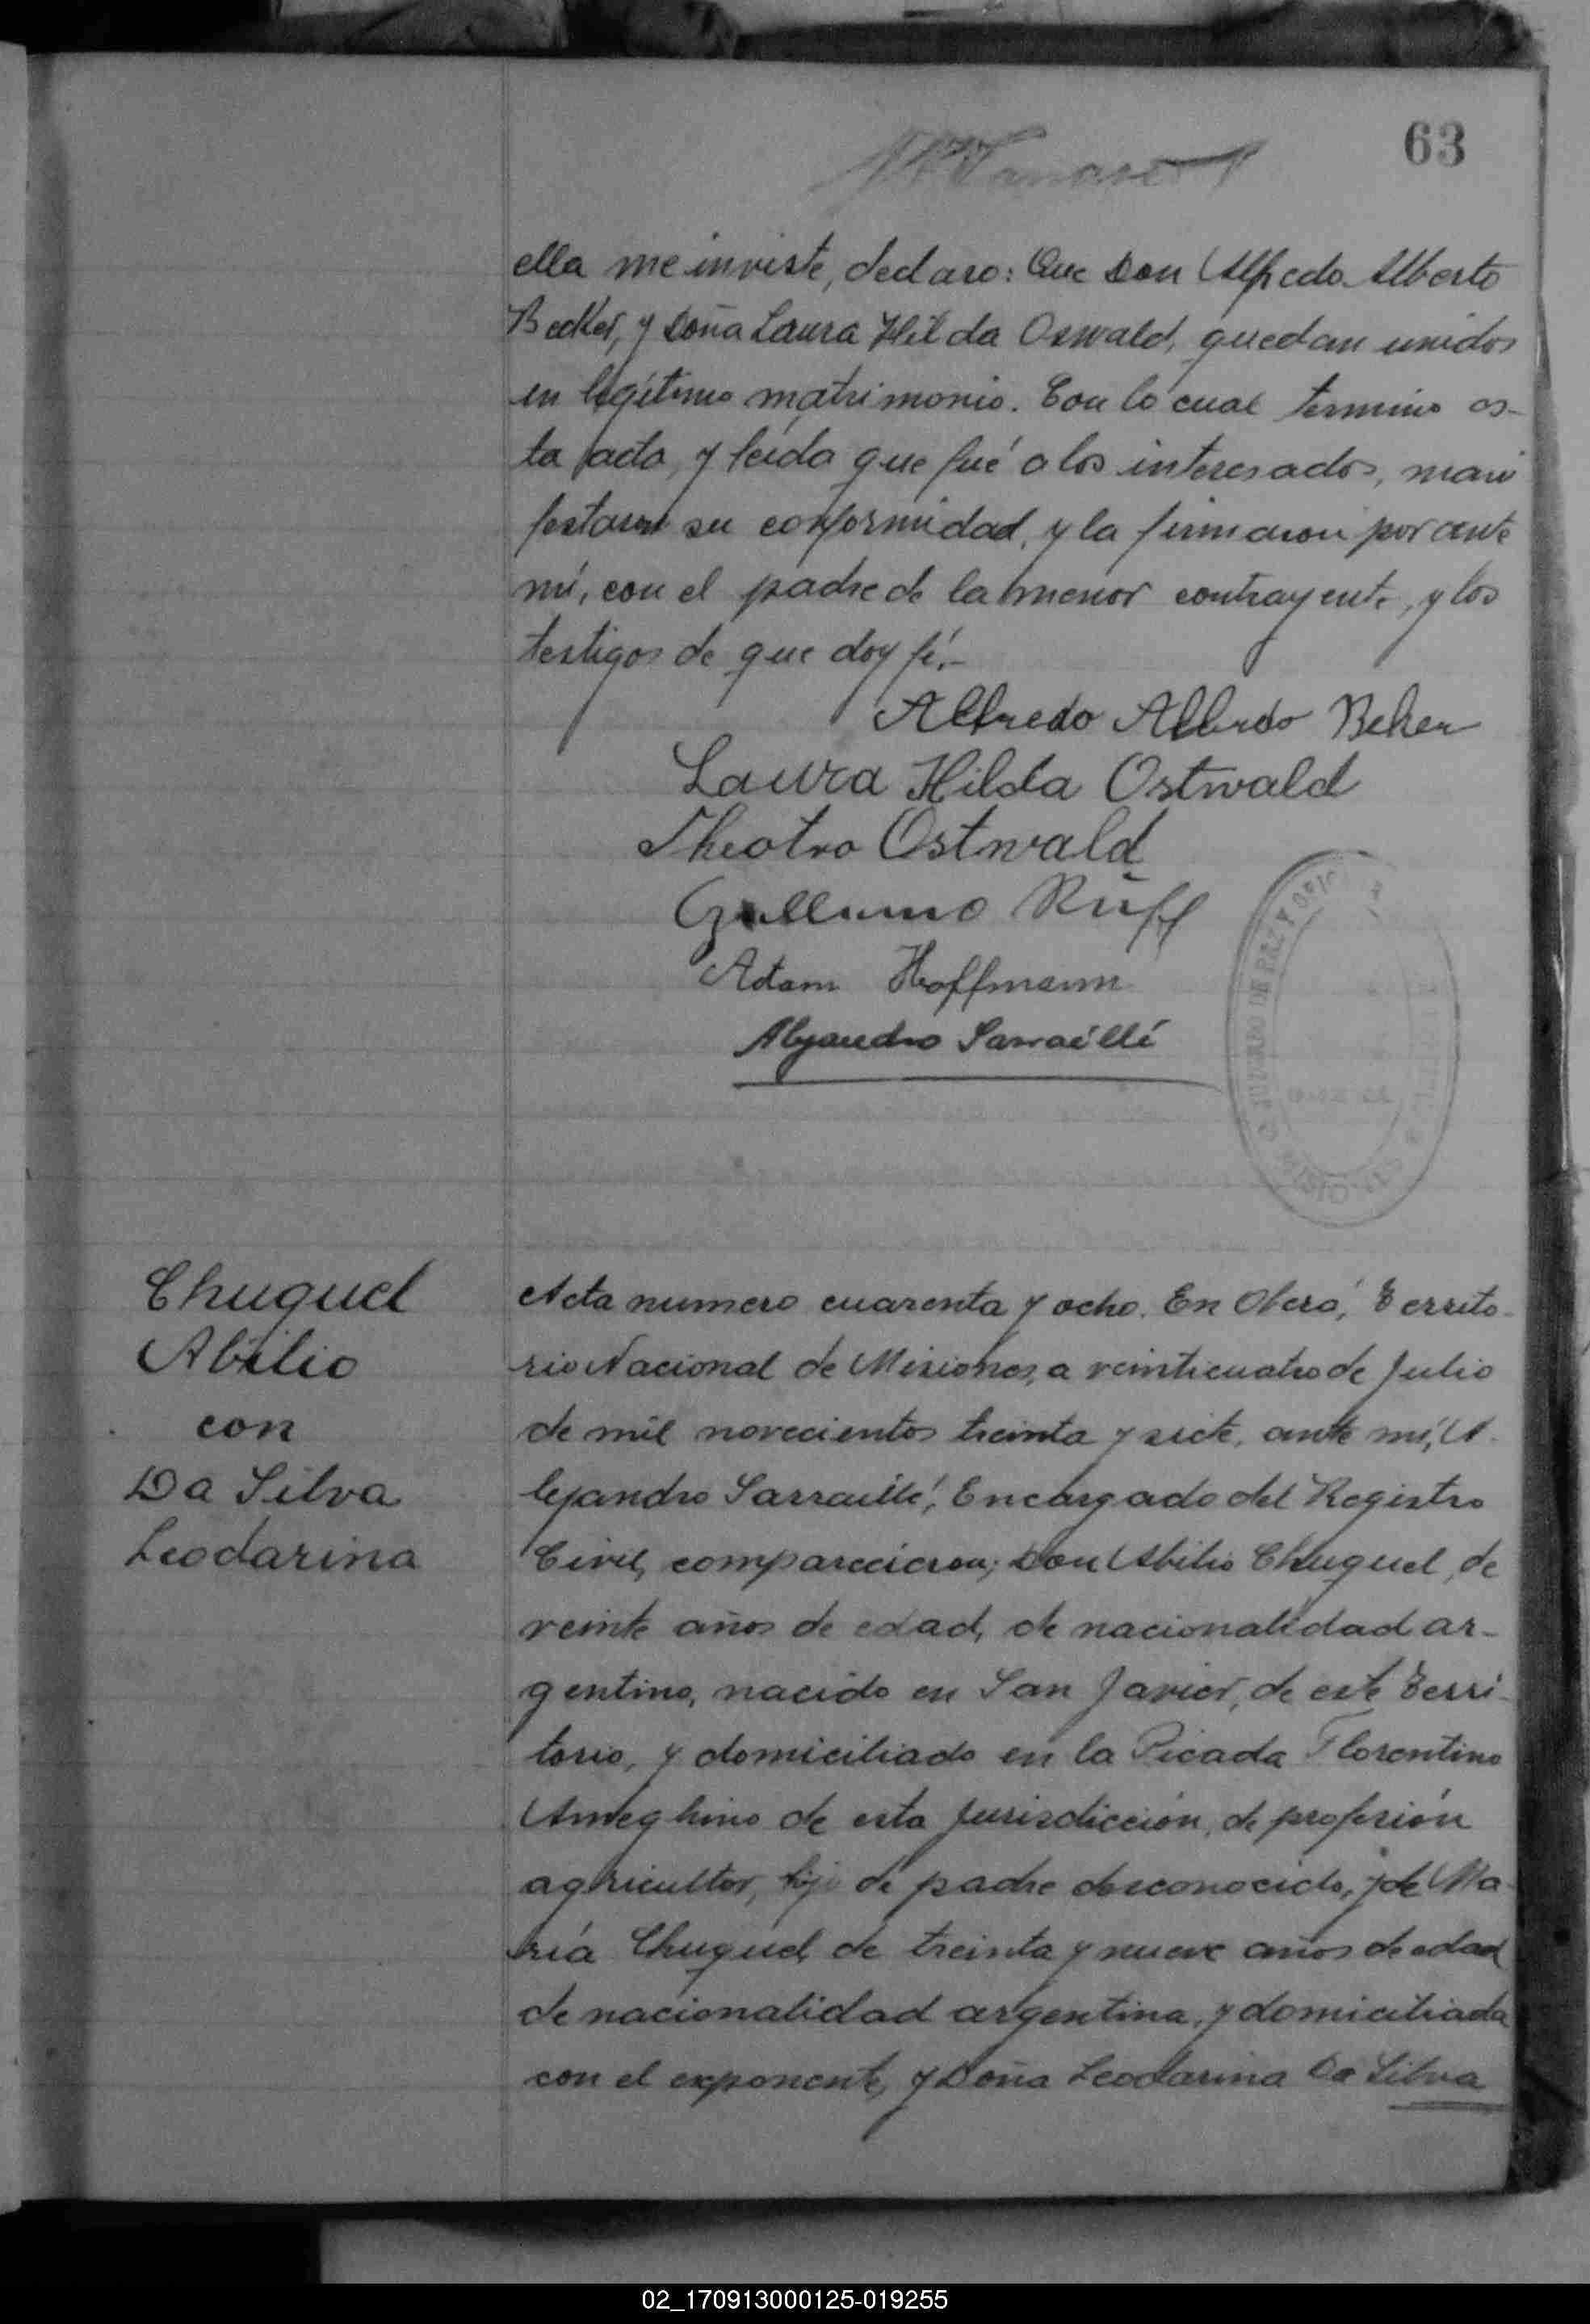 63
ella me inviste, declaro: Que Don Alfredo Alberto
Becker, y Doña Laura Hilda Oswald, quedan unidos
en legítimo matrimonio. Con lo cual termino es-
ta acta, y leída que fué a los interesados, mani
festaron su conformidad, y la firmaron por ante
mí, con el padre de la menor contrayente, y los
testigos de que doy fé.-
Alfredo Alberdo Beker
Laura Hilda Ostwald
Ostwald
Ruff
Adam Hoffmann
Alejandro Sarraillé
JUZGADO DE PAZ Y
Chuquel
Abilio
con
Da Silva
Leodarina
Acta numero cuarenta y ocho. En Oberá, Territo-
rio Nacional de Misiones, a veinticuatro de Julio
de mil novecientos treinta y siete, ante mí, A-
lejandro Sarraillé, Encargado del Registro
Civil, comparecieron; Don Abilio Chuquel, de
veinte años de edad, de nacionalidad ar-
gentino, nacido en San Javier, de este Terri-
torio, y domiciliado en la Picada Florentino
Ameghino de esta Jurisdicción, de profesión
agricultor, hijo de padre desconocido, y de Ma-
ría Chuquel, de treinta y nueve años de edad
de nacionalidad argentina, y domiciliada
con el exponente, y Doña Leodarina Da Silva
02_170913000125-019255